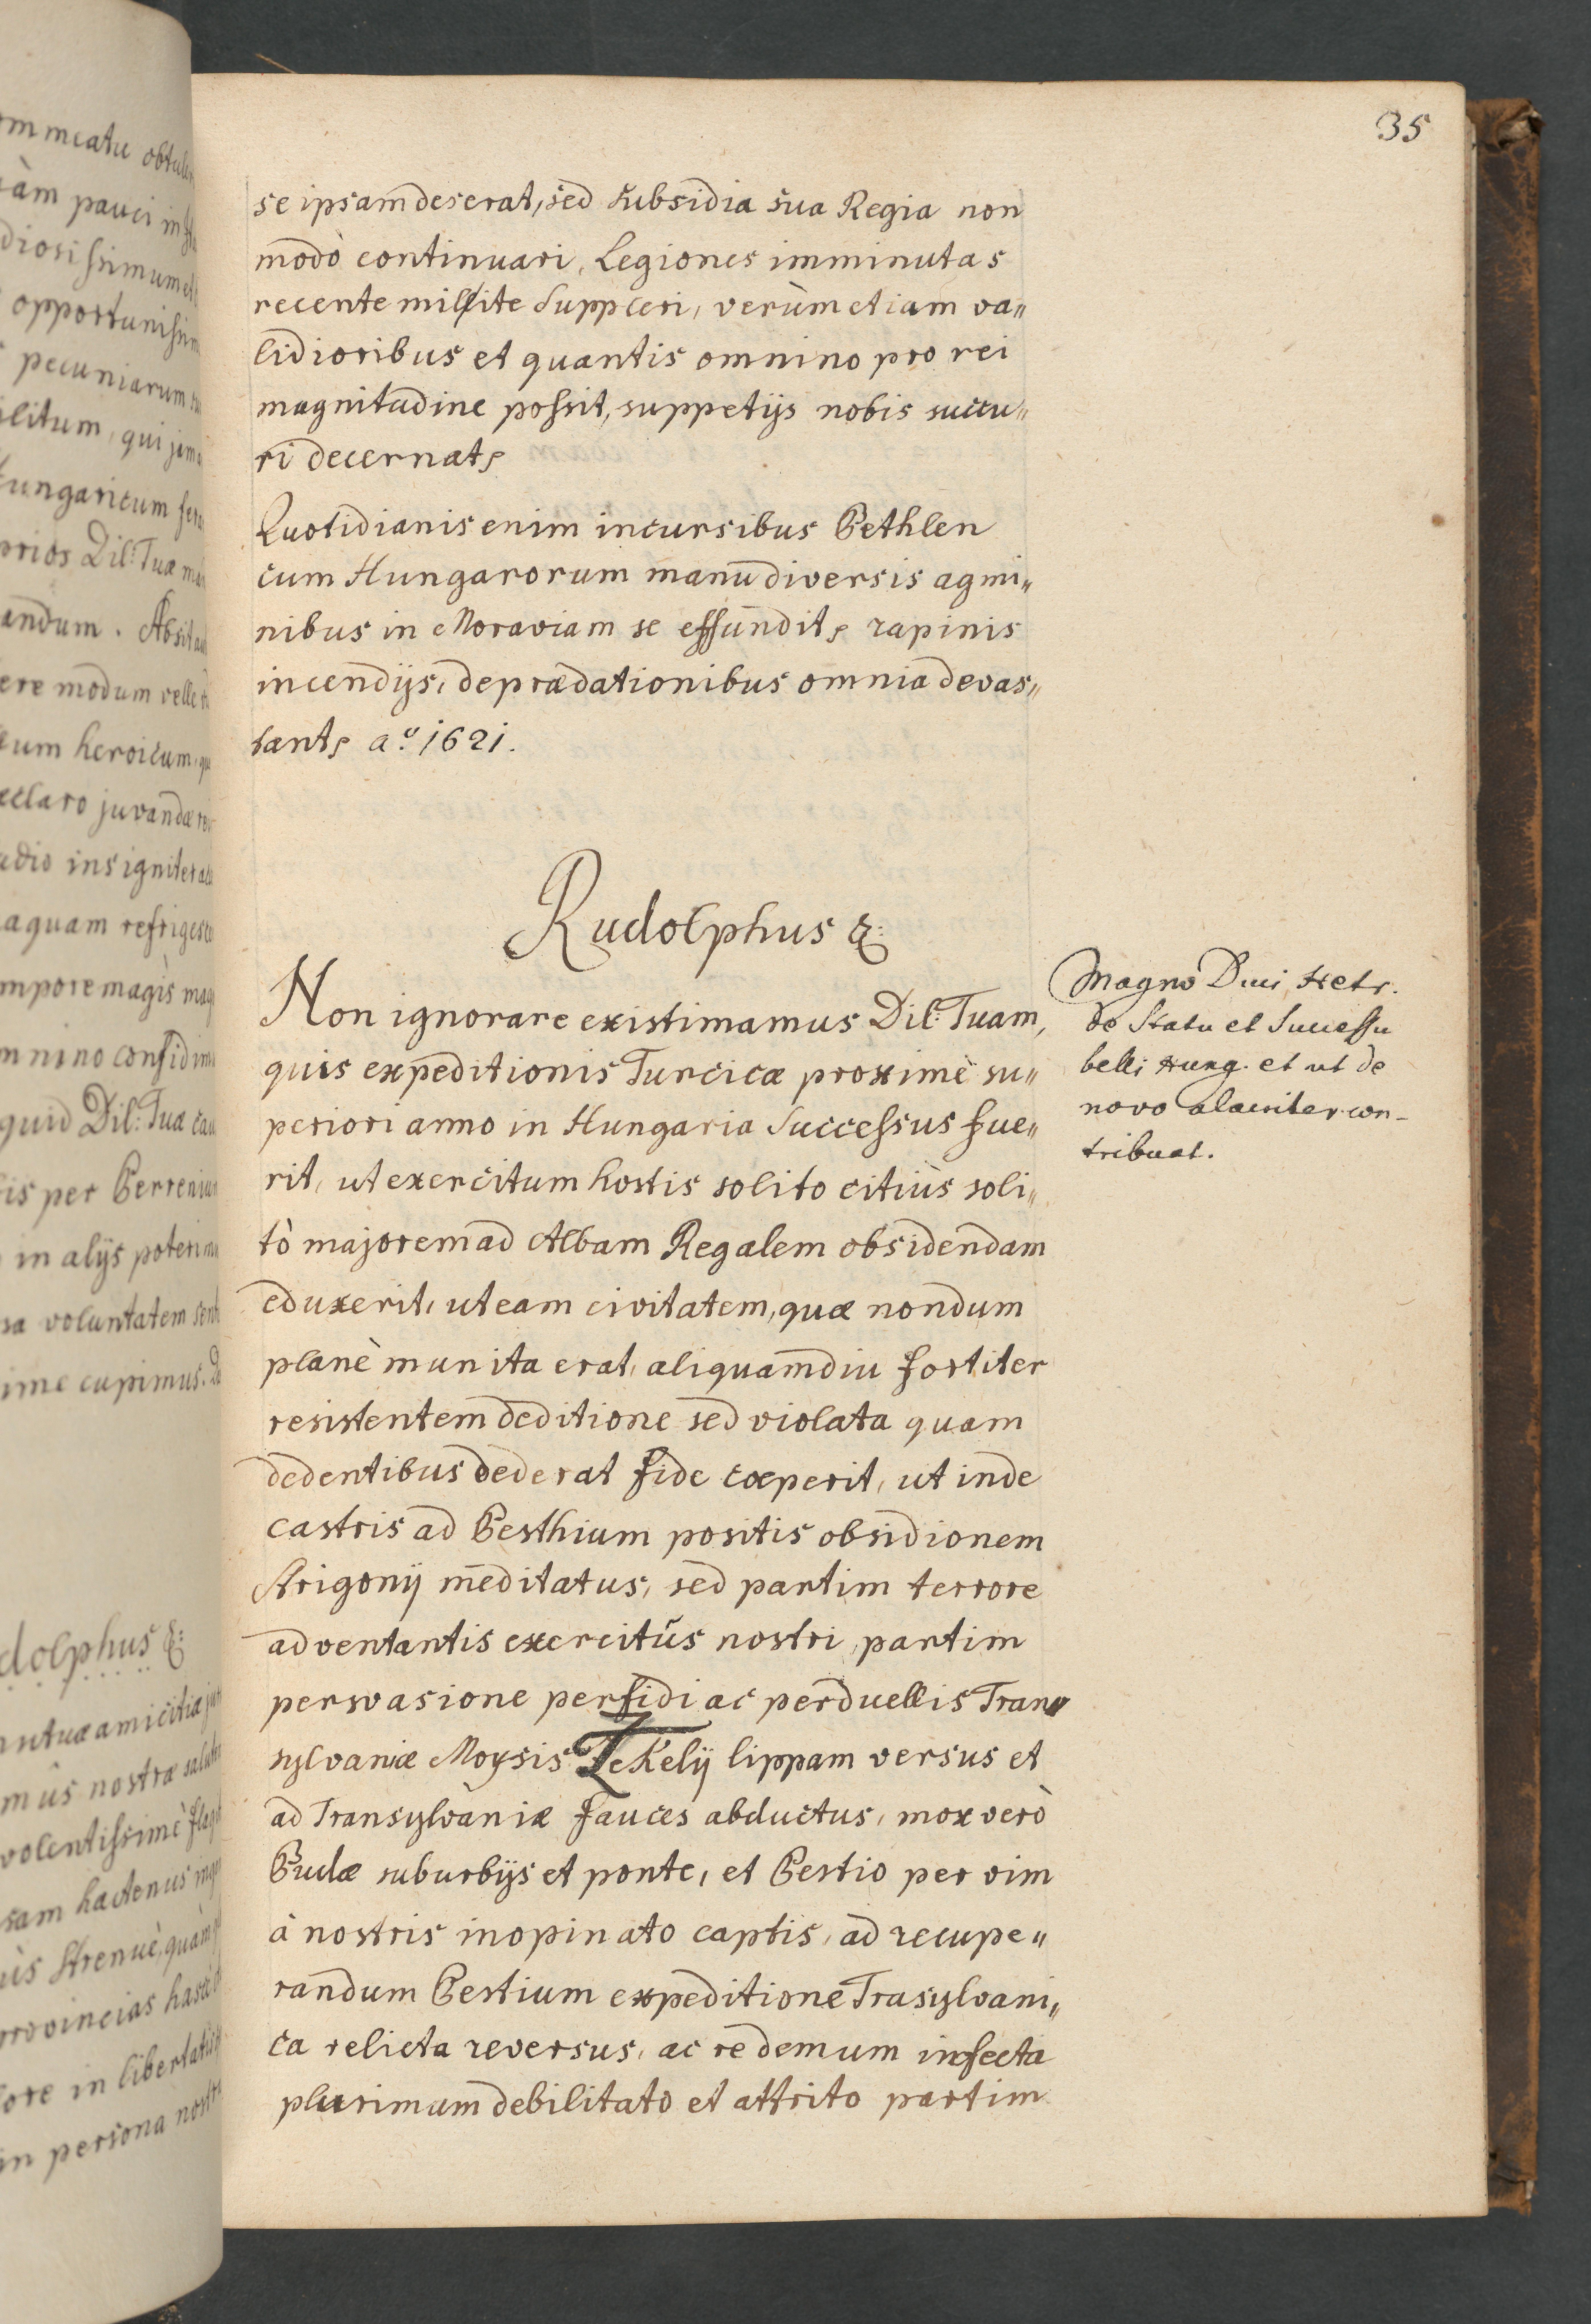 35
se ipsam deserat, sed subsidia sua Regia non
modò continuari, Legiones imminutas
recente milite suppleri, verùm etiam va„
lidioribus et quantis omnino pro rei
magnitudine possit, suppetijs nobis succu„
ri decernat,
Quotidianis enim incursibus Bethlen
cum Hungarorum manu diversis agmi„
nibus in Moraviam se effundit, rapinis
incendijs, depraedationibus omnia devas„
tant, aº. 1621.
Rudolphus &:
Non ignorare existimamus Dil: Tuam,
quis expeditionis Turcicæ proximè su„
periori anno in Hungaria Successus fue„
rit, ut exercitum hostis solito citiùs soli„
tò majorem ad Albam Regalem obsidendam
eduxerit, ut eam civitatem, quæ nondum
planè munita erat, aliquamdiu fortiter
resistentem deditione sed violata quam
dedentibus dederat fide cœperit, ut inde
castris ad Besthium positis obsidionem
Strigonij meditatus, sed partim terrore
adventantis exercitûs nostri, partim
persvasione perfidi ac perduellis Tran„
sylvaniæ Moysis Zekelij lippam versus et
ad Transylvaniæ fauces abductus, mox verò
Budæ suburbijs et ponte, et Bestio per vim
à nostris inopinato captis, ad recupe„
randum Bestium expeditione Trasylvani„
ca relicta reversus, ac re demum infecta
plurimum debilitato et attrito partim
Magno Duci Hetr.
de Statu et Successu
belli Hung. et ut de
novo alacriter con-
tribuat.